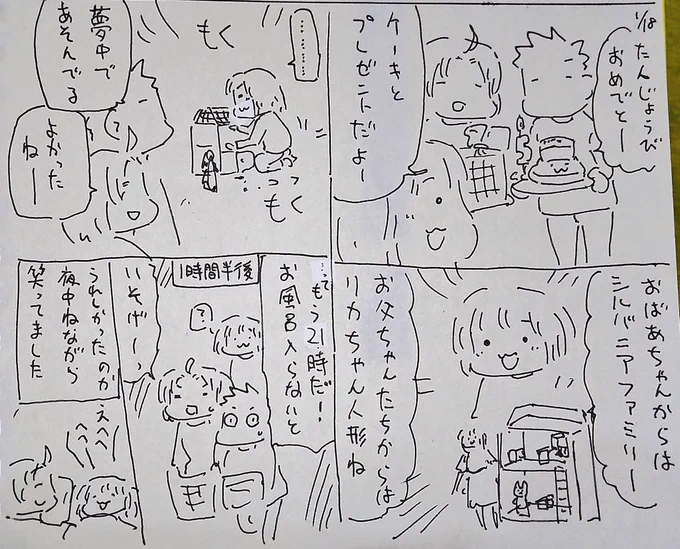 1/18 たんじょうび
おめでとー
ケーキと
プレゼントだよー
おばあちゃんからは
シルバニアファミリー
お父ちゃんたちからは
リカちゃん人形ね
…………
もく
もく
夢中で
あそんでる
よかった
ねー
1時間半後
…って
もう21時だ!
お風呂入らないと
?
いそげーっ
うれしかったのか
夜中ねながら
笑ってました
えへへ
へへ